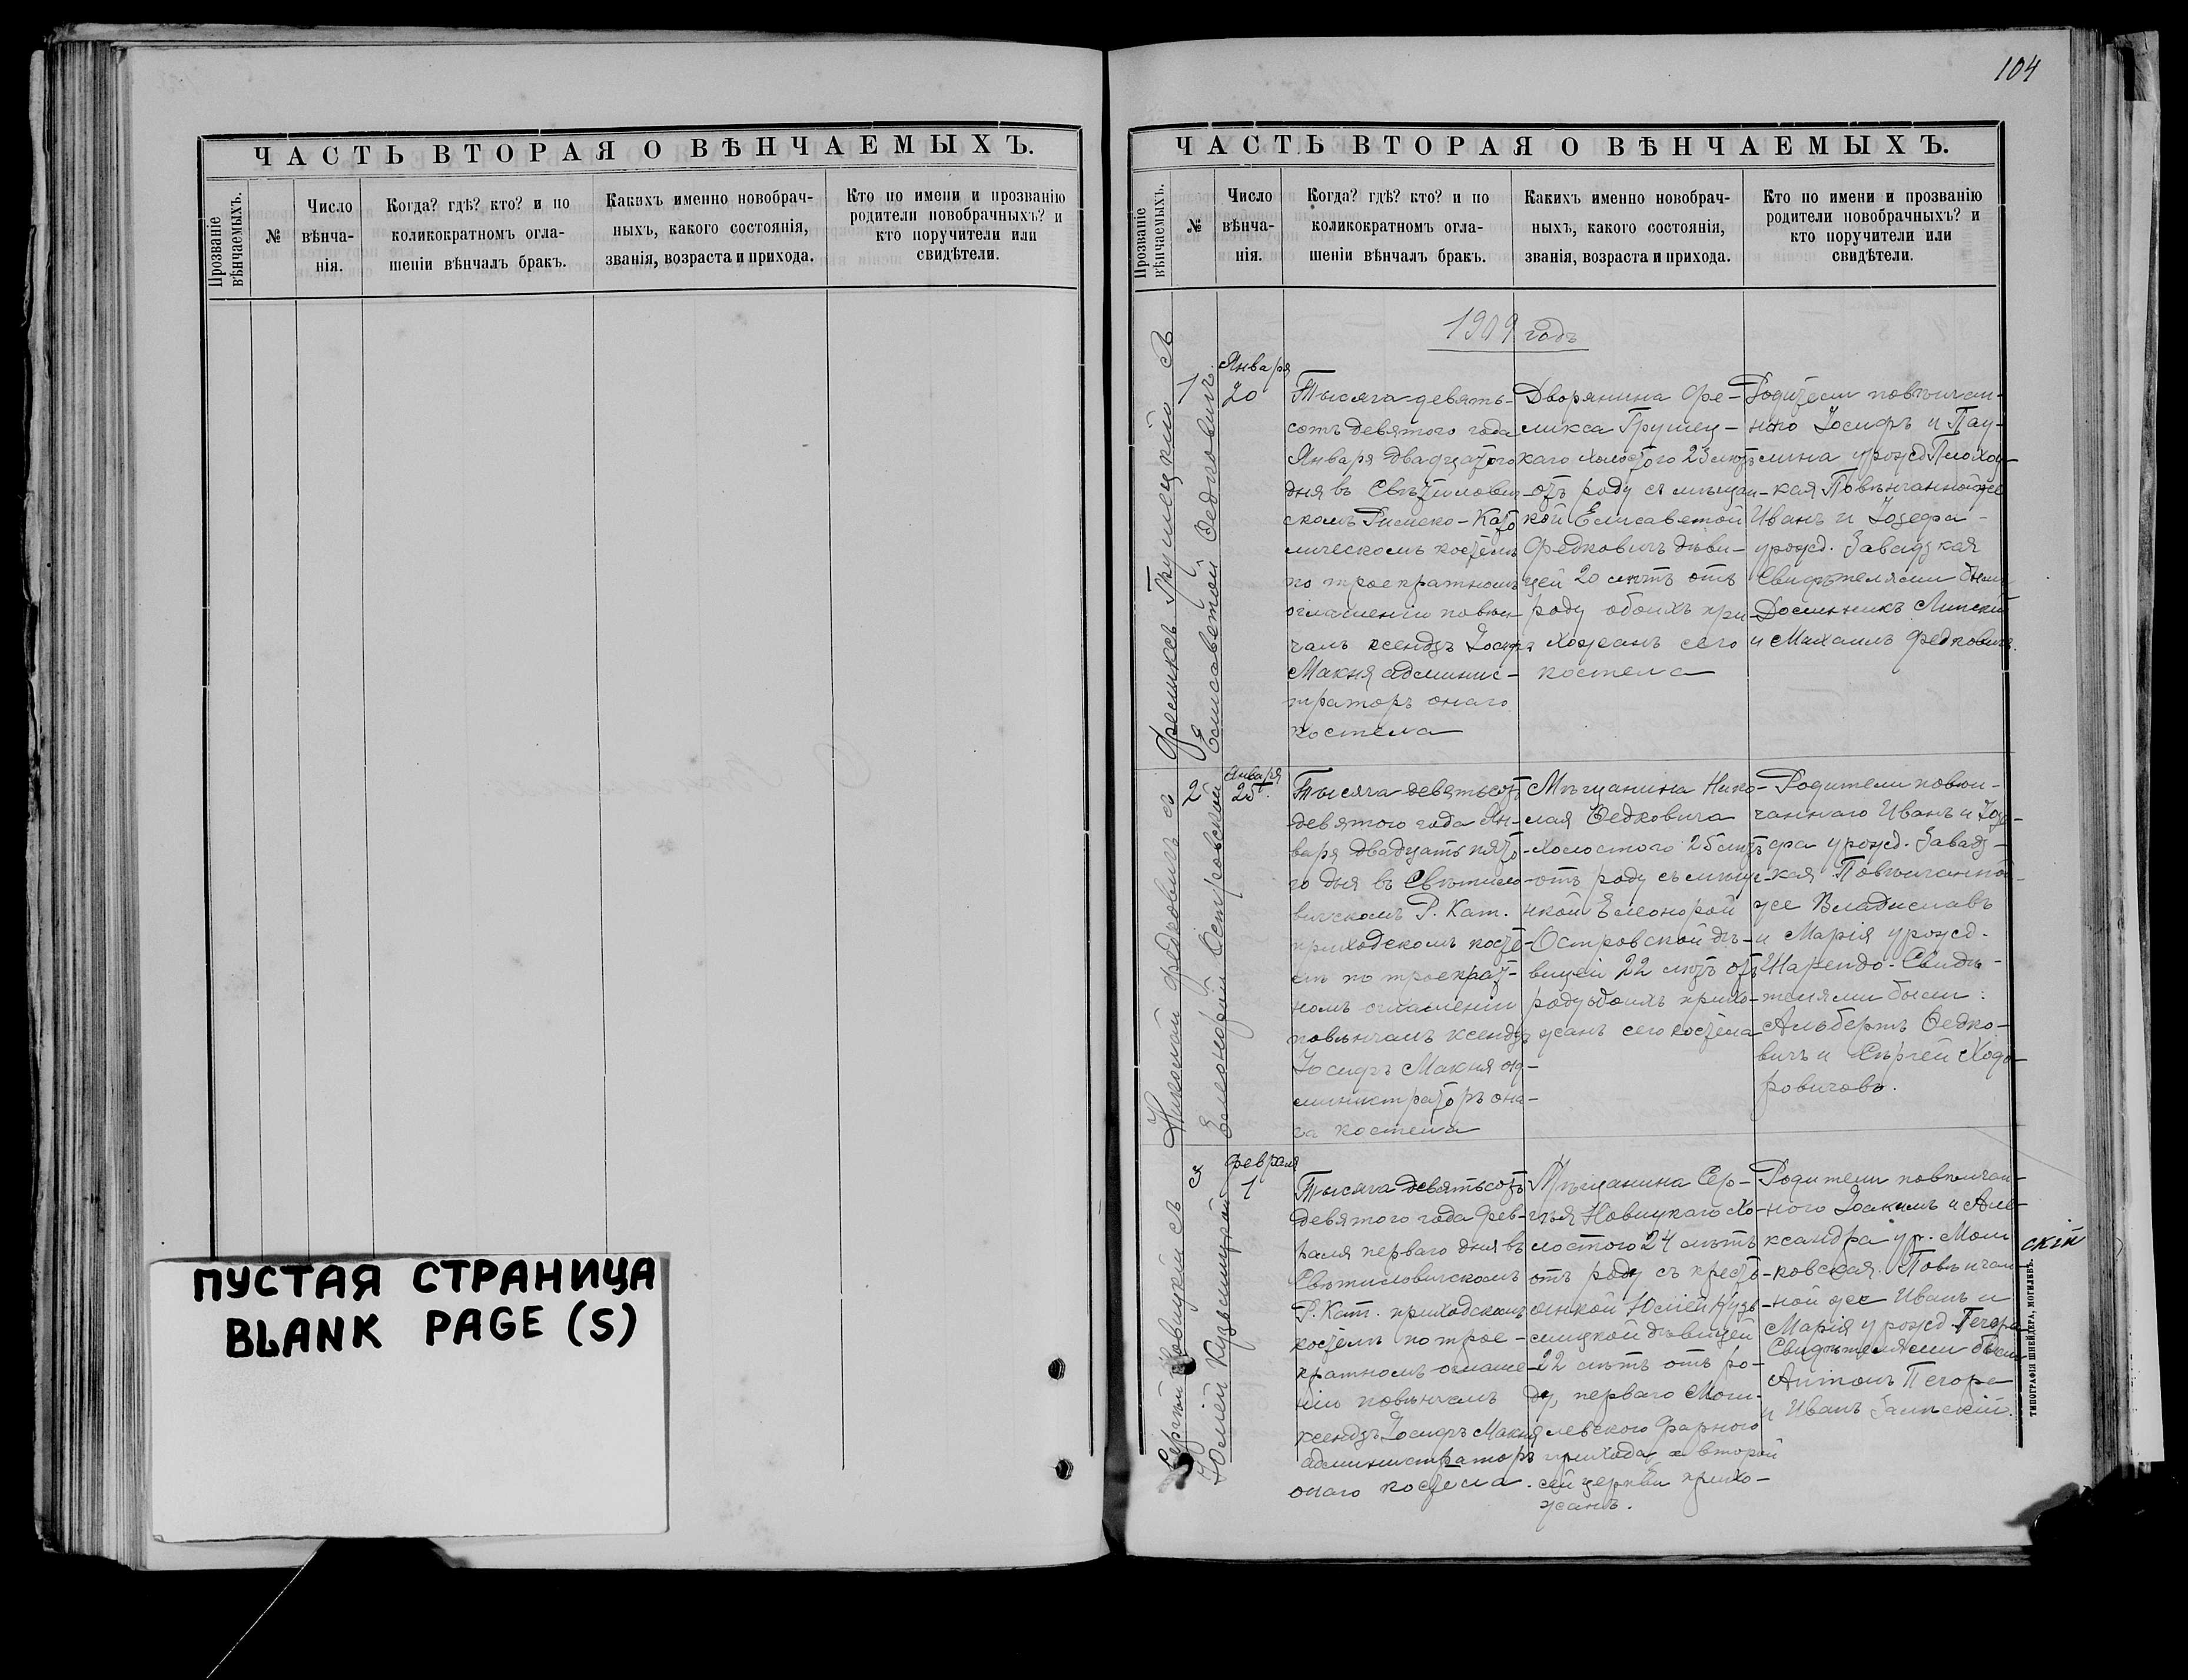 104
ЧАСТЬ ВТОРАЯ О ВѢНЧАЕМЫХЪ.
Прозваніе
вѣнчаемыхъ.
№
Число
вѣнча-
нія.
Когда? гдѣ? кто? и по
коликократномъ огла-
шеніи вѣнчалъ бракъ.
Какихъ именно новобрач-
ныхъ, какого состоянія,
званія, возраста и прихода.
Кто по имени и прозванію
родители новобрачныхъ? и
кто поручители или
свидѣтели.
ПУСТАЯ СТРАНИЦА
BLANK PAGE (S)
ЧАСТЬ ВТОРАЯ О ВѢНЧАЕМЫХЪ.
Прозваніе
вѣнчаемыхъ.
№
Число
вѣнча-
нія.
Когда? гдѣ? кто? и по
коликократномъ огла-
шеніи вѣнчалъ бракъ.
Какихъ именно новобрач-
ныхъ, какого состоянія,
званія, возраста и прихода.
Кто по имени и прозванію
родители новобрачныхъ? и
кто поручители или
свидѣтели.
1909 годъ
Феликсъ Грушецкій съ
Елисаветой Ѳедковичъ
1
Января
20
Тысяча девять-
сотъ девятого года
Января двадцатого
дня въ Свѣтилович-
скомъ Римско-Като
лическомъ костелѣ
по троекратномъ
оглашеніи повѣн-
чалъ ксендзъ Іосифъ
Макня админис-
траторъ онаго
костела
Дворянина Фе-
ликса Грушец-
каго холостого 23 лѣтъ
отъ роду съ мѣщан-
кой Елисаветой
Федковичъ дѣви-
цей 20 лѣтъ отъ
роду обоихъ при-
хожанъ сего
костела
Родители повѣнчан-
ного Іосифъ и Пау-
лина урожд. Плохоц-
кая Повѣнчанной же
Иванъ и Іозефа
урожд. Завадзкая
Свидѣтелями были
Доминикъ Липскій
и Михаилъ Федковичъ.
Николай Федковичъ съ
Елеонорой Островской
2
Января
25.
Тысяча девятьсотъ
девятого года Ян-
варя двадцать пято-
го дня въ Свѣтило-
вичскомъ Р. Кат.
приходскомъ косте-
лѣ по троекрат-
номъ оглашеніи
повѣнчалъ ксендзъ
Іосифъ Макня ад-
министраторъ она-
го костела
Мѣщанина Нико-
лая Ѳедковича
холостого 25 лѣтъ
отъ роду съ мѣща-
нкой Елеонорой
Островской дѣ-
вицей 22 лѣтъ отъ
роду обоихъ прихо-
жанъ сего костела
Родители повѣн-
чаннаго Иванъ и Іозе-
фа урожд. Завадз-
кая Повѣнчанной
же Владиславъ
и Марія урожд.
Шарендо. Свидѣ-
телями были:
Альбертъ Ѳедко-
вичъ и Сергей Ходо-
ровичовъ.
Сергѣй Новицкій съ
Юліей Кузьмицкой
3
Февраля
1
Тысяча девятьсотъ
девятого года Фев-
раля перваго дня въ
Свѣтиловичскомъ
Р. Кат. приходскомъ
костелѣ по трое-
кратномъ оглаше-
ніи повѣнчалъ
ксендзъ Іосифъ Макня
администраторъ
онаго костела.
Мѣщанина Сер-
гѣя Новицкаго хо-
лостого 24 лѣтъ
отъ роду съ кресть-
янкой Юліей Кузь-
мицкой дѣвицей
22 лѣтъ отъ ро-
ду, перваго Моги-
левского Фарного
прихода а второй
сей церкви прихо-
жанъ.
Родители повѣнчан-
ного Іоакимъ и Але-
ксандра ур.
ковская. Повѣнчан-
ной же Иванъ и
Марія урожд.
Свидѣтелями были
Антонъ
и Иванъ
скій
ТИПОГРАФІЯ ШНЕЙДЕРА, МОГИЛЕВЪ.